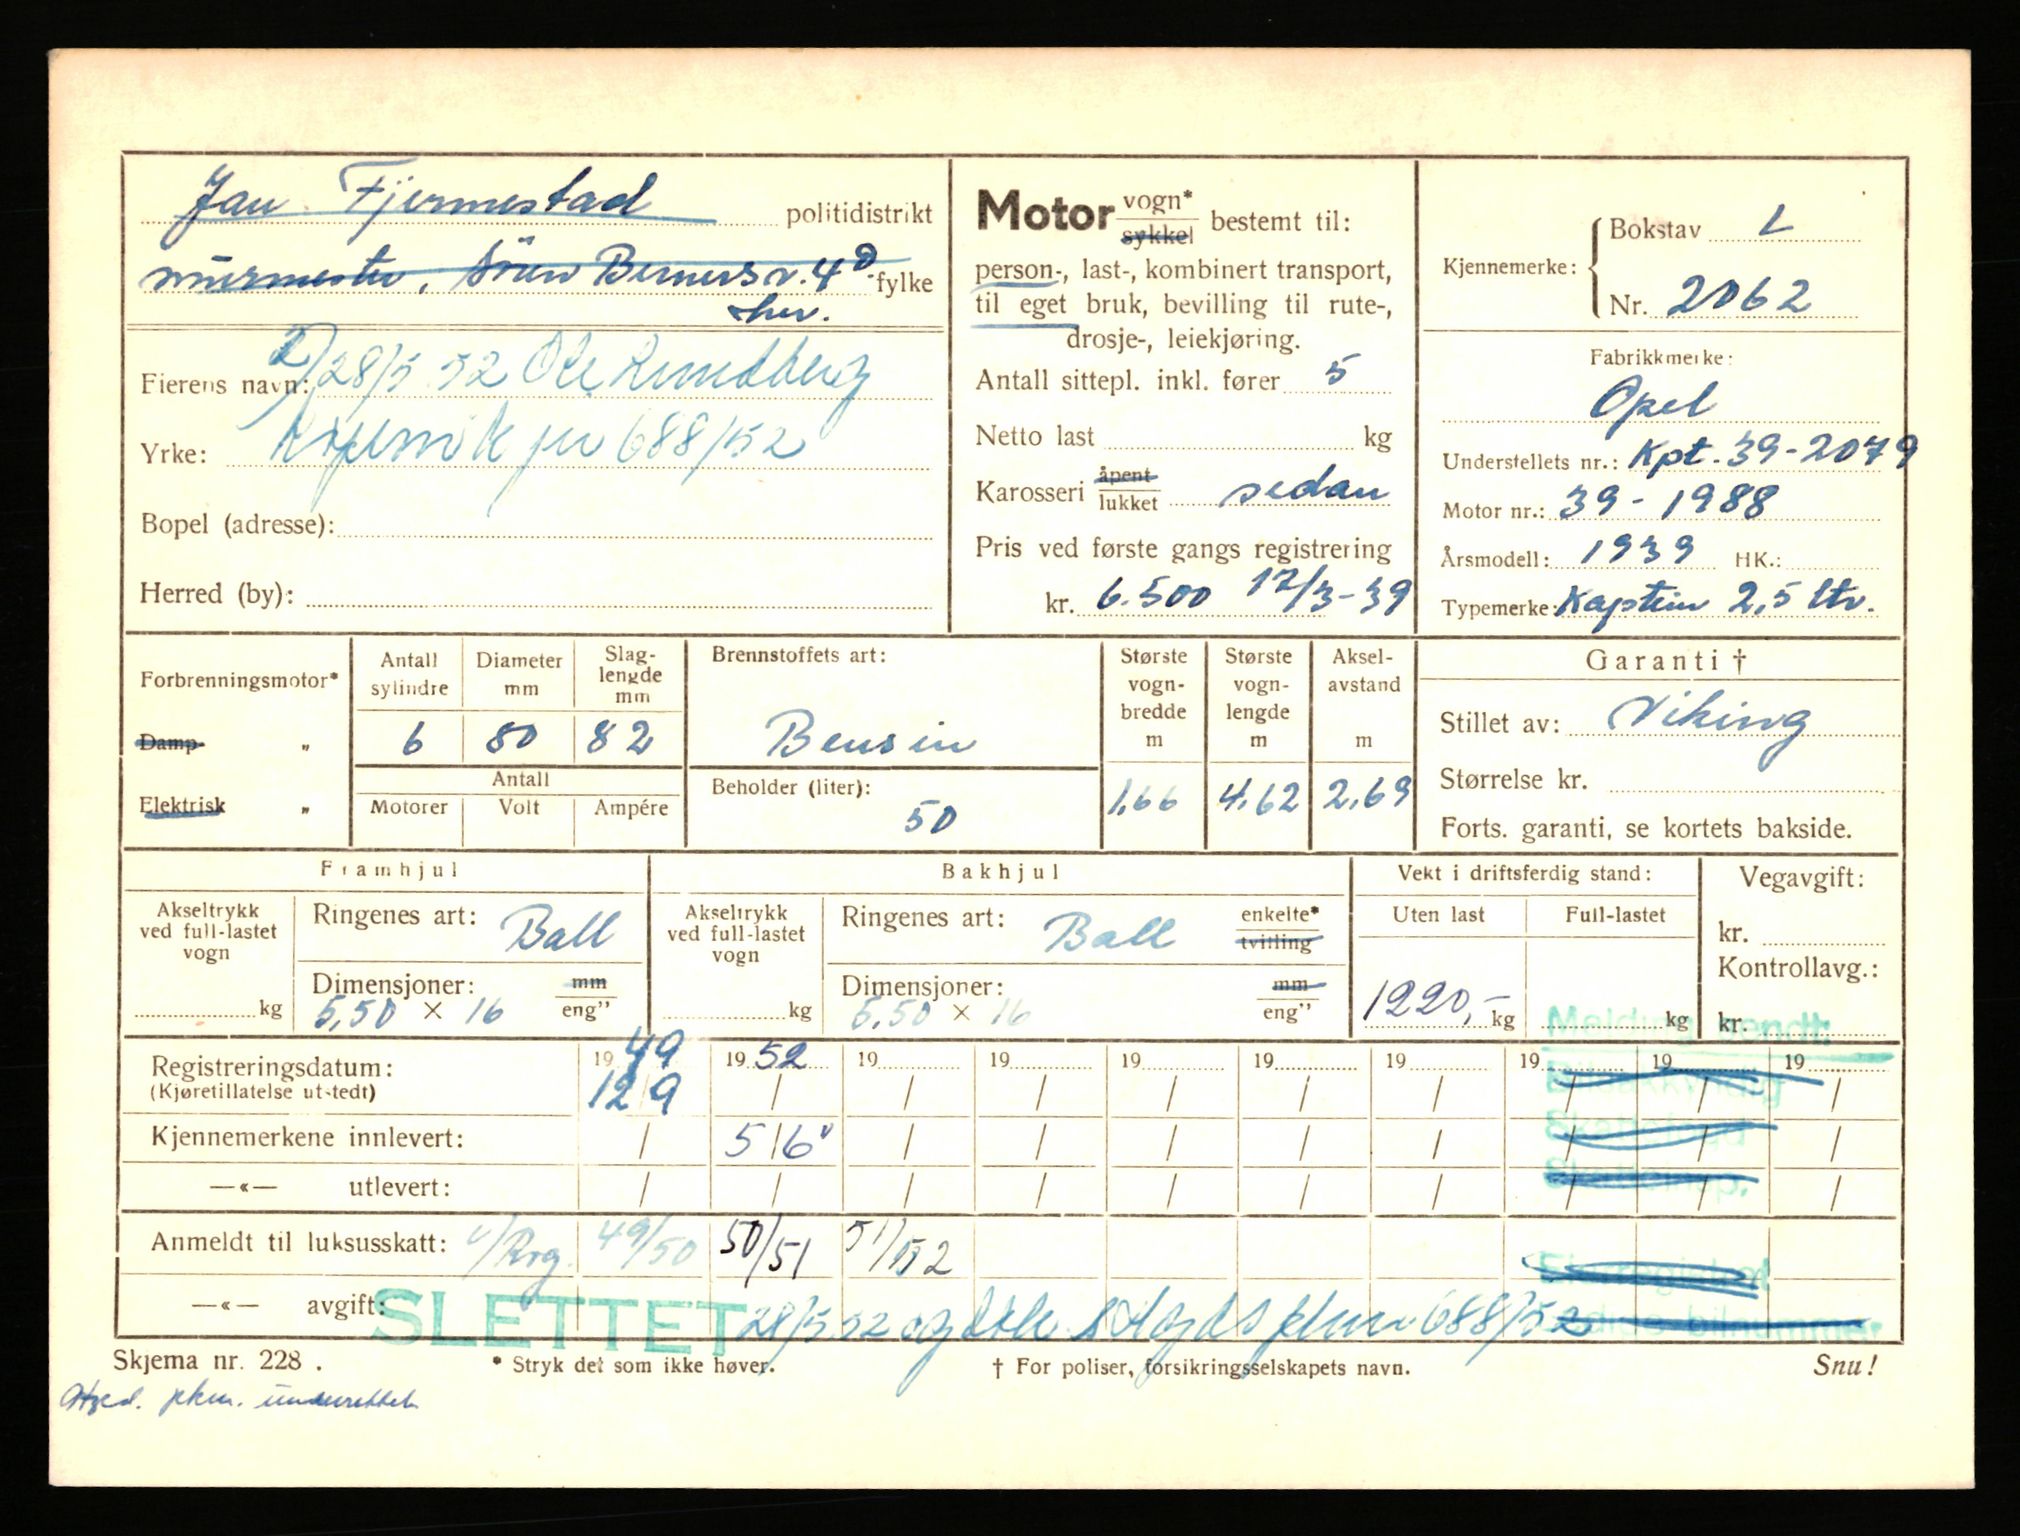 Jan Fjermestad politidistrikt
murmester, Sören Berners v. 4ᴰ fylke
her.
Fierens navn: 2) 28/5 52 Ole Lundberg
Yrke: Kopervik jnr 688/52
Bopel (adresse):
Herred (by):
Motor vogn* sykkel bestemt til:
person-, last-, kombinert transport,
til eget bruk, bevilling til rute-,
drosje-, leiekjøring.
Antall sittepl. inkl. fører 5
Netto last kg
Karosseri åpent lukket sedan
Pris ved første gangs registrering
kr. 6.500 17/3-39
Kjennemerke: Bokstav L
Nr. 2062
Fabrikkmerke:
Opel
Understellets nr.: Kpt. 39-2079
Motor nr.: 39-1988
Årsmodell: 1939 HK.:
Typemerke: Kaptein 2,5 ltr.
Forbrenningsmotor*
Damp- „
Elektrisk „
Antall sylindre
6
Diameter mm
80
Slag-lengde mm
82
Antall
Motorer Volt Ampére
Brennstoffets art:
Bensin
Beholder (liter):
50
Største vogn-bredde m
1,66
Største vogn-lengde m
4,62
Aksel-avstand m
2,69
Garanti †
Stillet av: Viking
Størrelse kr.
Forts. garanti, se kortets bakside.
Framhjul
Akseltrykk ved full-lastet vogn
kg
Ringenes art: Ball
Dimensjoner: mm
5,50 × 16 eng”
Bakhjul
Akseltrykk ved full-lastet vogn
kg
Ringenes art: Ball enkelte* tvilling
Dimensjoner: mm
5,50 × 16 eng”
Vekt i driftsferdig stand:
Uten last Full-lastet
1220,- kg kg
Vegavgift:
kr.
Kontrollavg.:
kr.
Melding sendt:
Registreringsdatum: 1949 1952 19 19 19 19 19 19 19 19
(Kjøretillatelse utstedt) 12 9 / / / / / / / / /
Kjennemerkene innlevert: / 5/6 / / / / / / / /
—«— utlevert: / / / / / / / / / /
Anmeldt til luksusskatt: 49/50 50/51 51/52
—«— avgift:
SLETTET 28/5 52 688/52
Skjema nr. 228 . * Stryk det som ikke høver. † For poliser, forsikringsselskapets navn. Snu!
underrettet